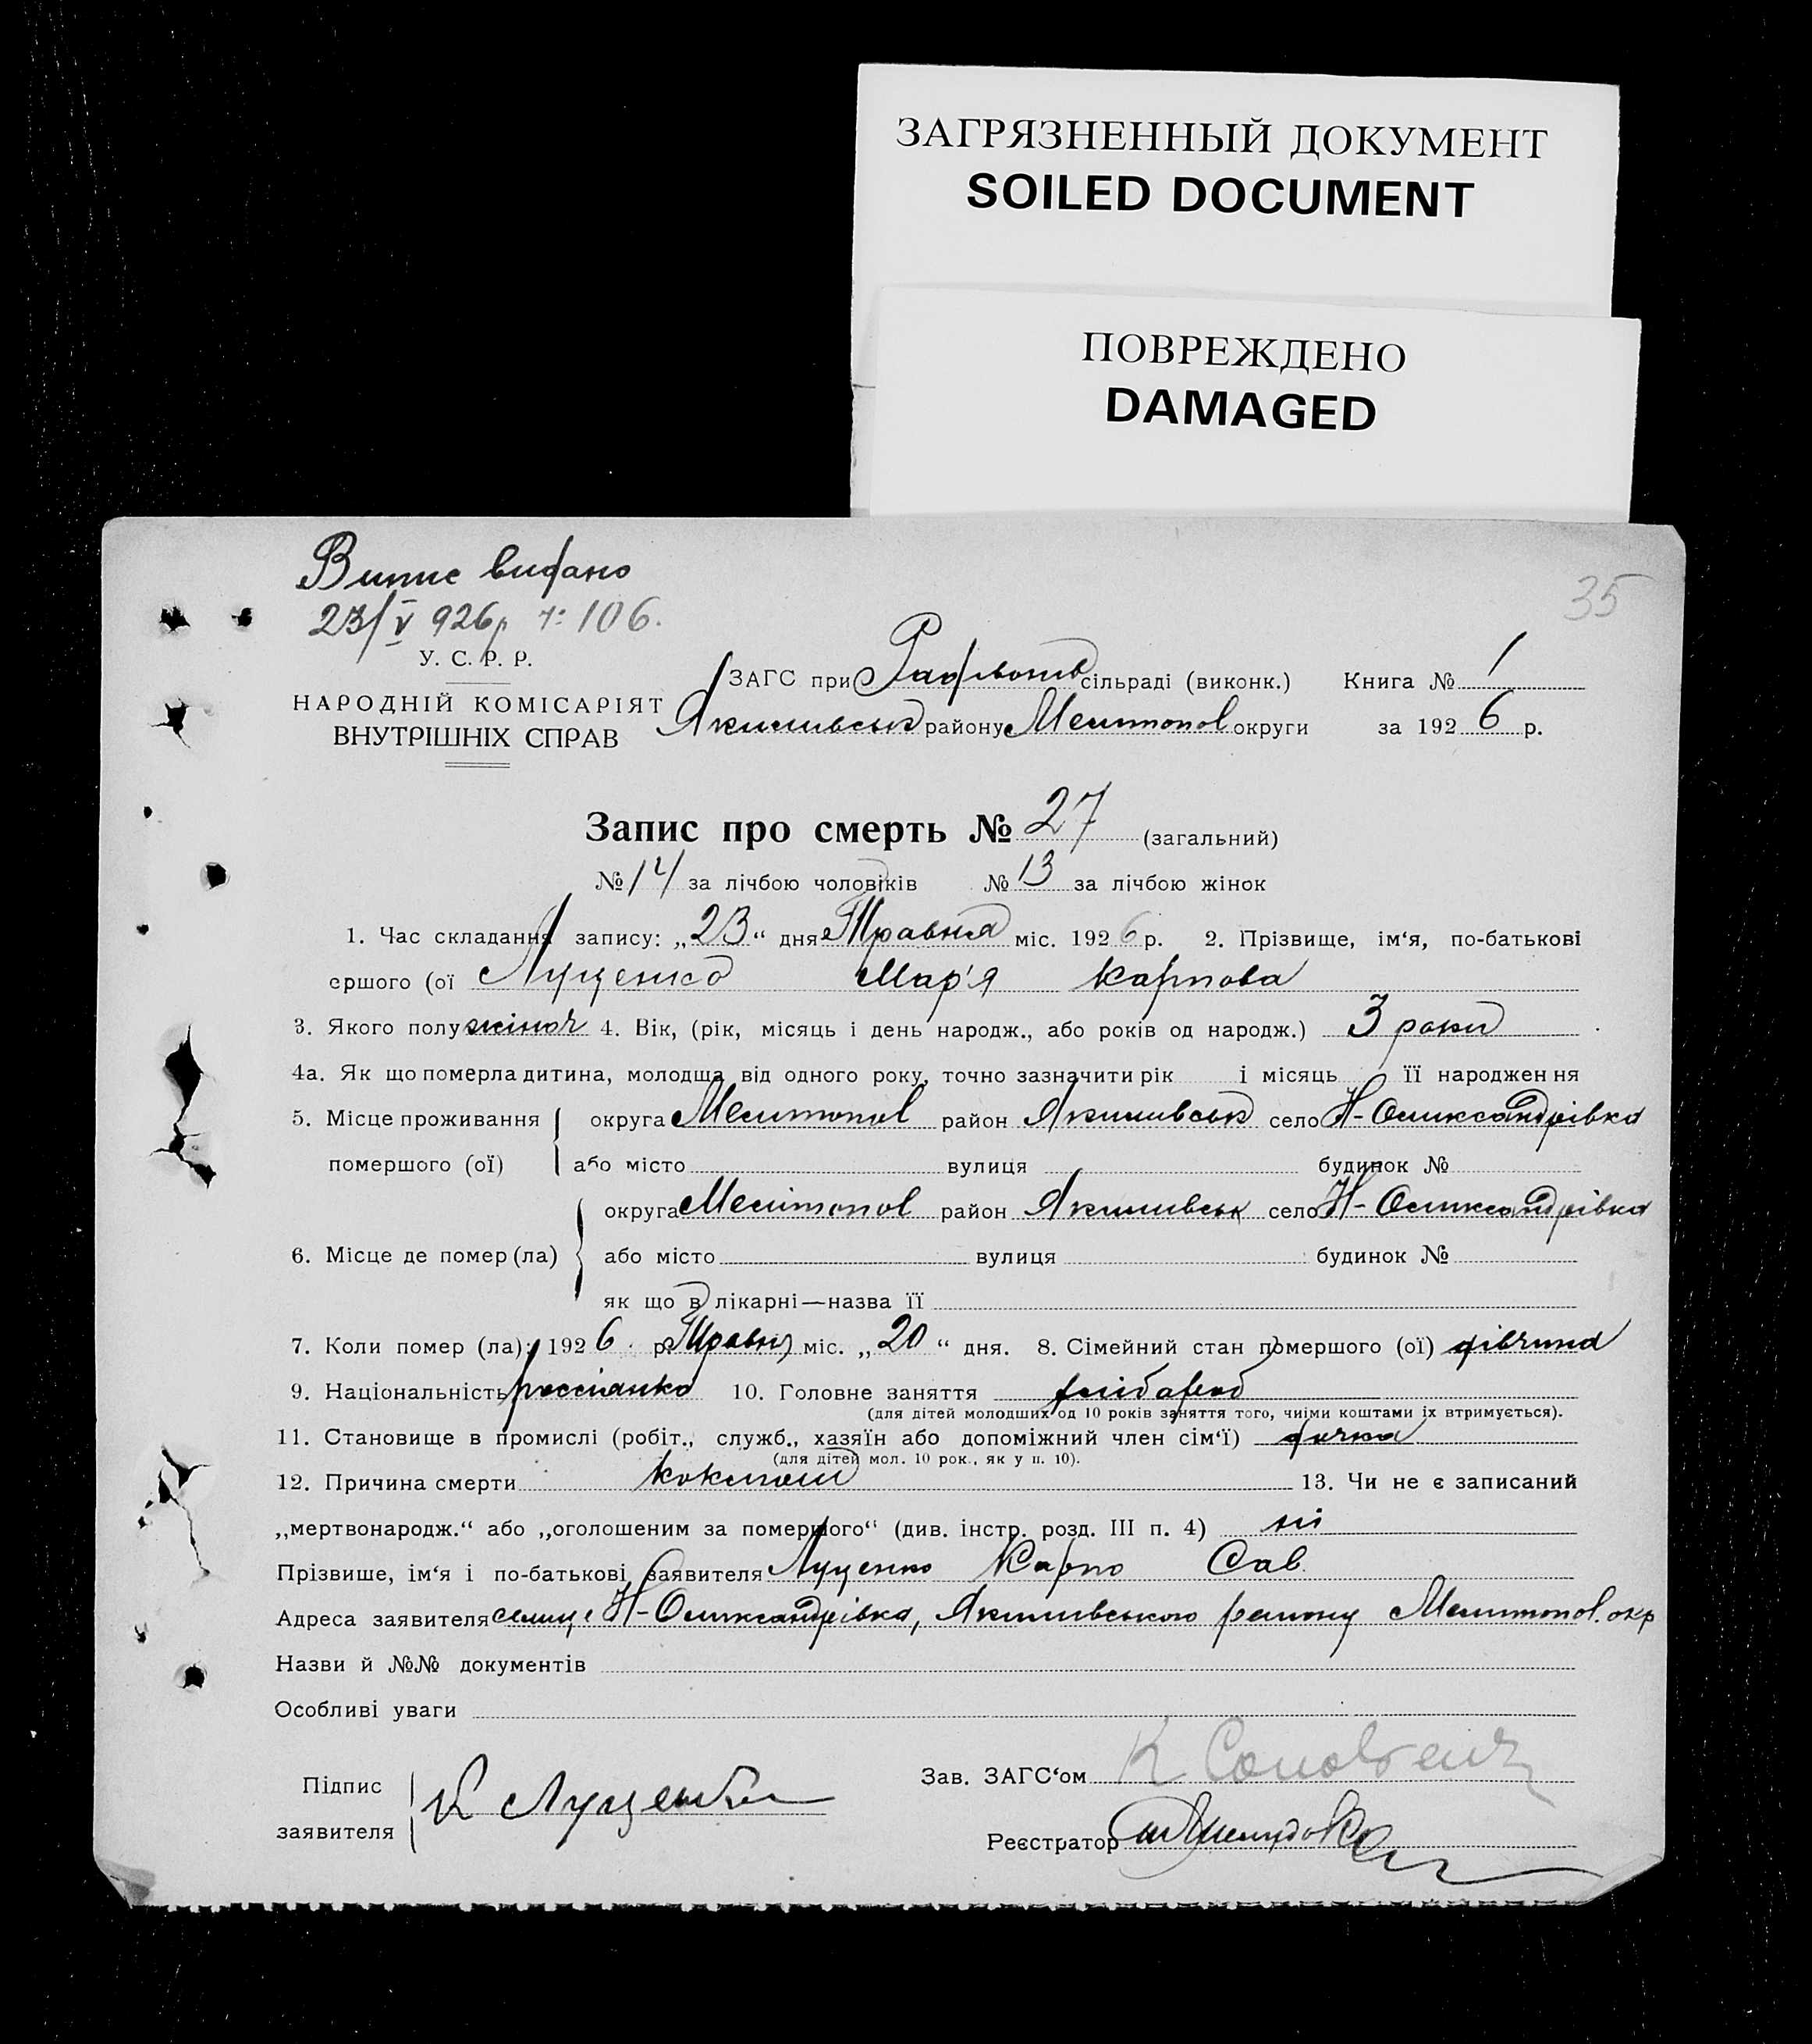 ЗАГРЯЗНЕННЫЙ ДОКУМЕНТ
SOILED DOCUMENT
ПОВРЕЖДЕНО
DAMAGED
Випис видано
23/V 926р ч: 106.
35
У. С. Р. Р.
НАРОДНІЙ КОМІСАРІЯТ
ВНУТРІШНІХ СПРАВ
ЗАГС при сільраді (виконк.) Книга № 1
Якимівськ району Мелитопол округи за 1926 р.
Запис про смерть № 27 (загальний)
№ 14 за лічбою чоловіків № 13 за лічбою жінок
1. Час складання запису: „23“ дня Травня міс. 1926 р. 2. Прізвище, ім‘я, по-батькові
ершого (ої Луценко Мар'я Карпова
3. Якого полу жіноч 4. Вік, (рік, місяць і день народж., або років од народж.) 3 роки
4а. Як що померла дитина, молодша від одного року, точно зазначити рік і місяць її народження
5. Місце проживання округа Мелитопол район Якимівськ село Н-Олександрівка
помершого (ої) або місто вулиця будинок №
округа Мелітопол район Якимівськ село Н-Олександрівка
6. Місце де помер (ла) або місто вулиця будинок №
як що в лікарні—назва її
7. Коли помер (ла): 1926 р. Травня міс. „20“ дня. 8. Сімейний стан помершого (ої) дівчина
9. Національність россіанка 10. Головне заняття хліб
(для дітей молодших од 10 років заняття того, чиїми коштами їх втримується).
11. Становище в промислі (робіт., служб., хазяїн або допоміжний член сім‘ї) дочка
(для дітей мол. 10 рок., як у п. 10).
12. Причина смерти коклюш 13. Чи не є записаний
„мертвонародж.“ або „оголошеним за помершого“ (див. інстр. розд. III п. 4) ні
Прізвише, ім‘я і по-батькові заявителя Луценко Карпо Сав.
Адреса заявителя селище Н-Олександрівка, Якимівського району Мелитопол. окр
Назви й №№ документів
Особливі уваги
Підпис
заявителя К Луценко
Зав. ЗАГС‘ом К
Реєстратор